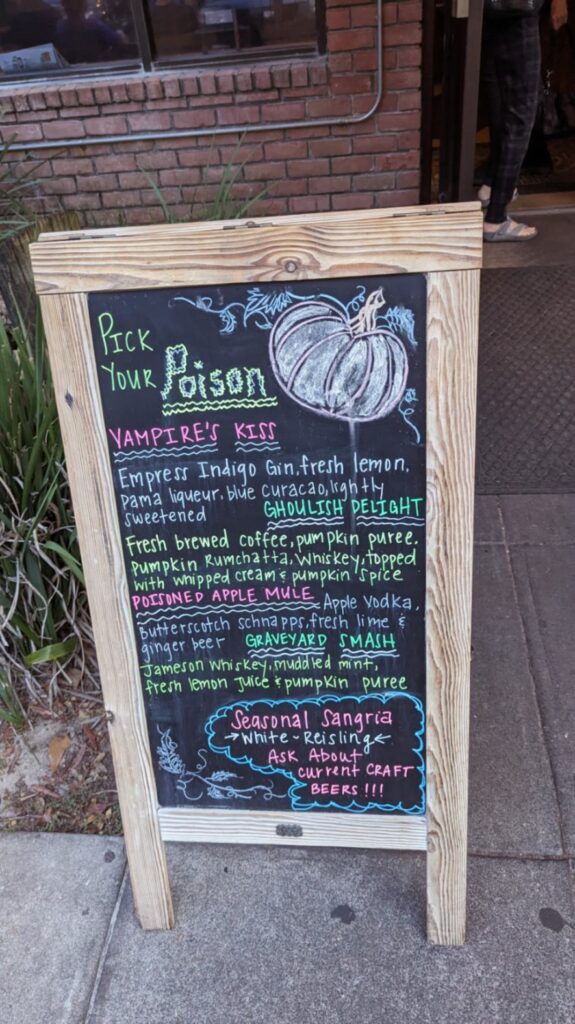 PICK
YOUR Poison
VAMPIRE'S KISS
Empress Indigo Gin, fresh lemon,
pama liqueur, blue curacao, lightly
sweetened
GHOULISH DELIGHT
Fresh brewed coffee, pumpkin puree,
pumpkin Rumchatta, Whiskey, topped
with whipped cream & pumpkin spice
POISONED APPLE MULE Apple Vodka,
butterscotch schnapps, fresh lime &
ginger beer
GRAVEYARD SMASH
Jameson Whiskey, muddled mint,
fresh lemon juice & pumpkin puree
Seasonal Sangria
→White - Reisling←
ASK About
current CRAFT
BEERS!!!